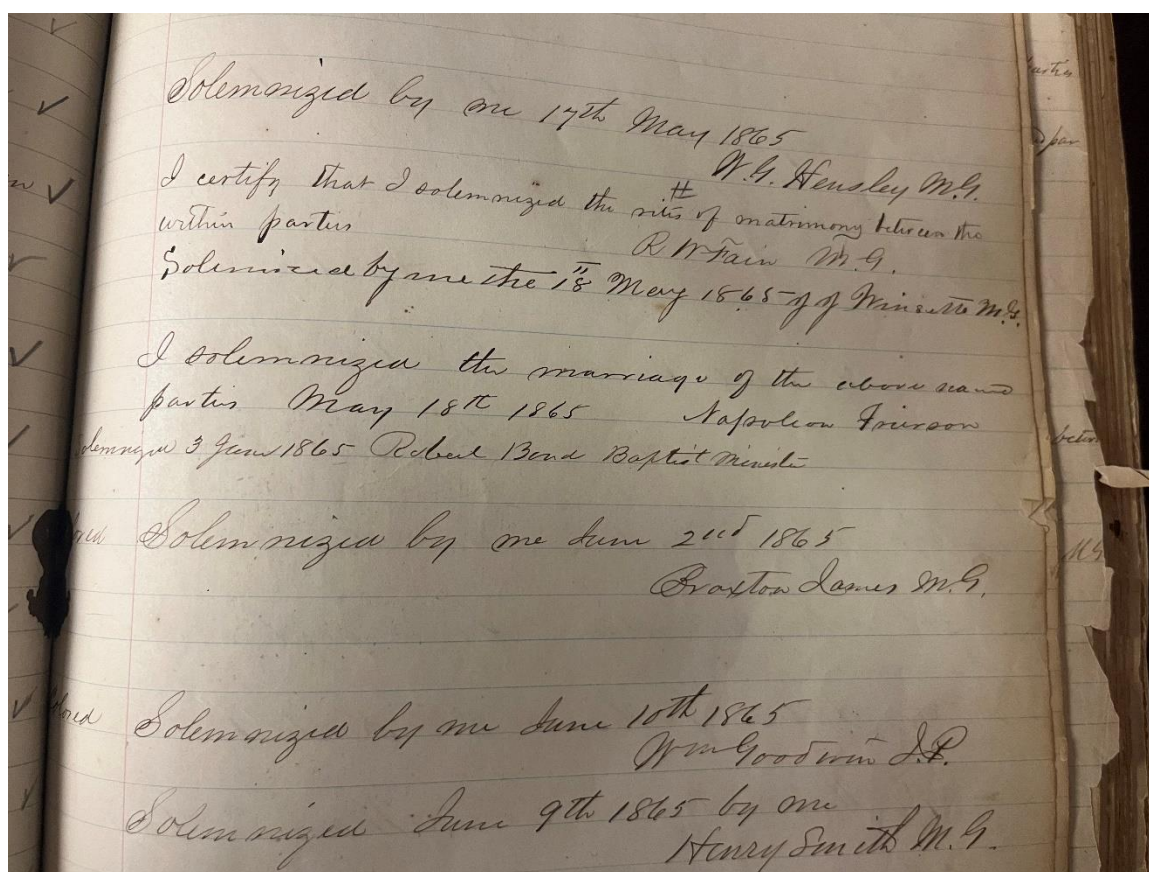 Solemnized by me 17th May 1865
W. G. Hensley M.G.
I certify that I solemnized the rites of matrimony between the
within parties
R W Fain M.G.
Solemnized by me the 18 May 1865 J J Winsette M.G.
I solemnized the marriage of the above name
parties May 18th 1865 Napoleon Frierson
olemnized 3 June 1865 Robert Bond Baptist Minister
ored Solemnized by me June 2nd 1865
Braxton James M.G.
olored Solemnized by me June 10th 1865
Wm Goodwin J.P.
Solemnized June 9th 1865 by me
Henry Smith M.G.
parties
par
betw
M G